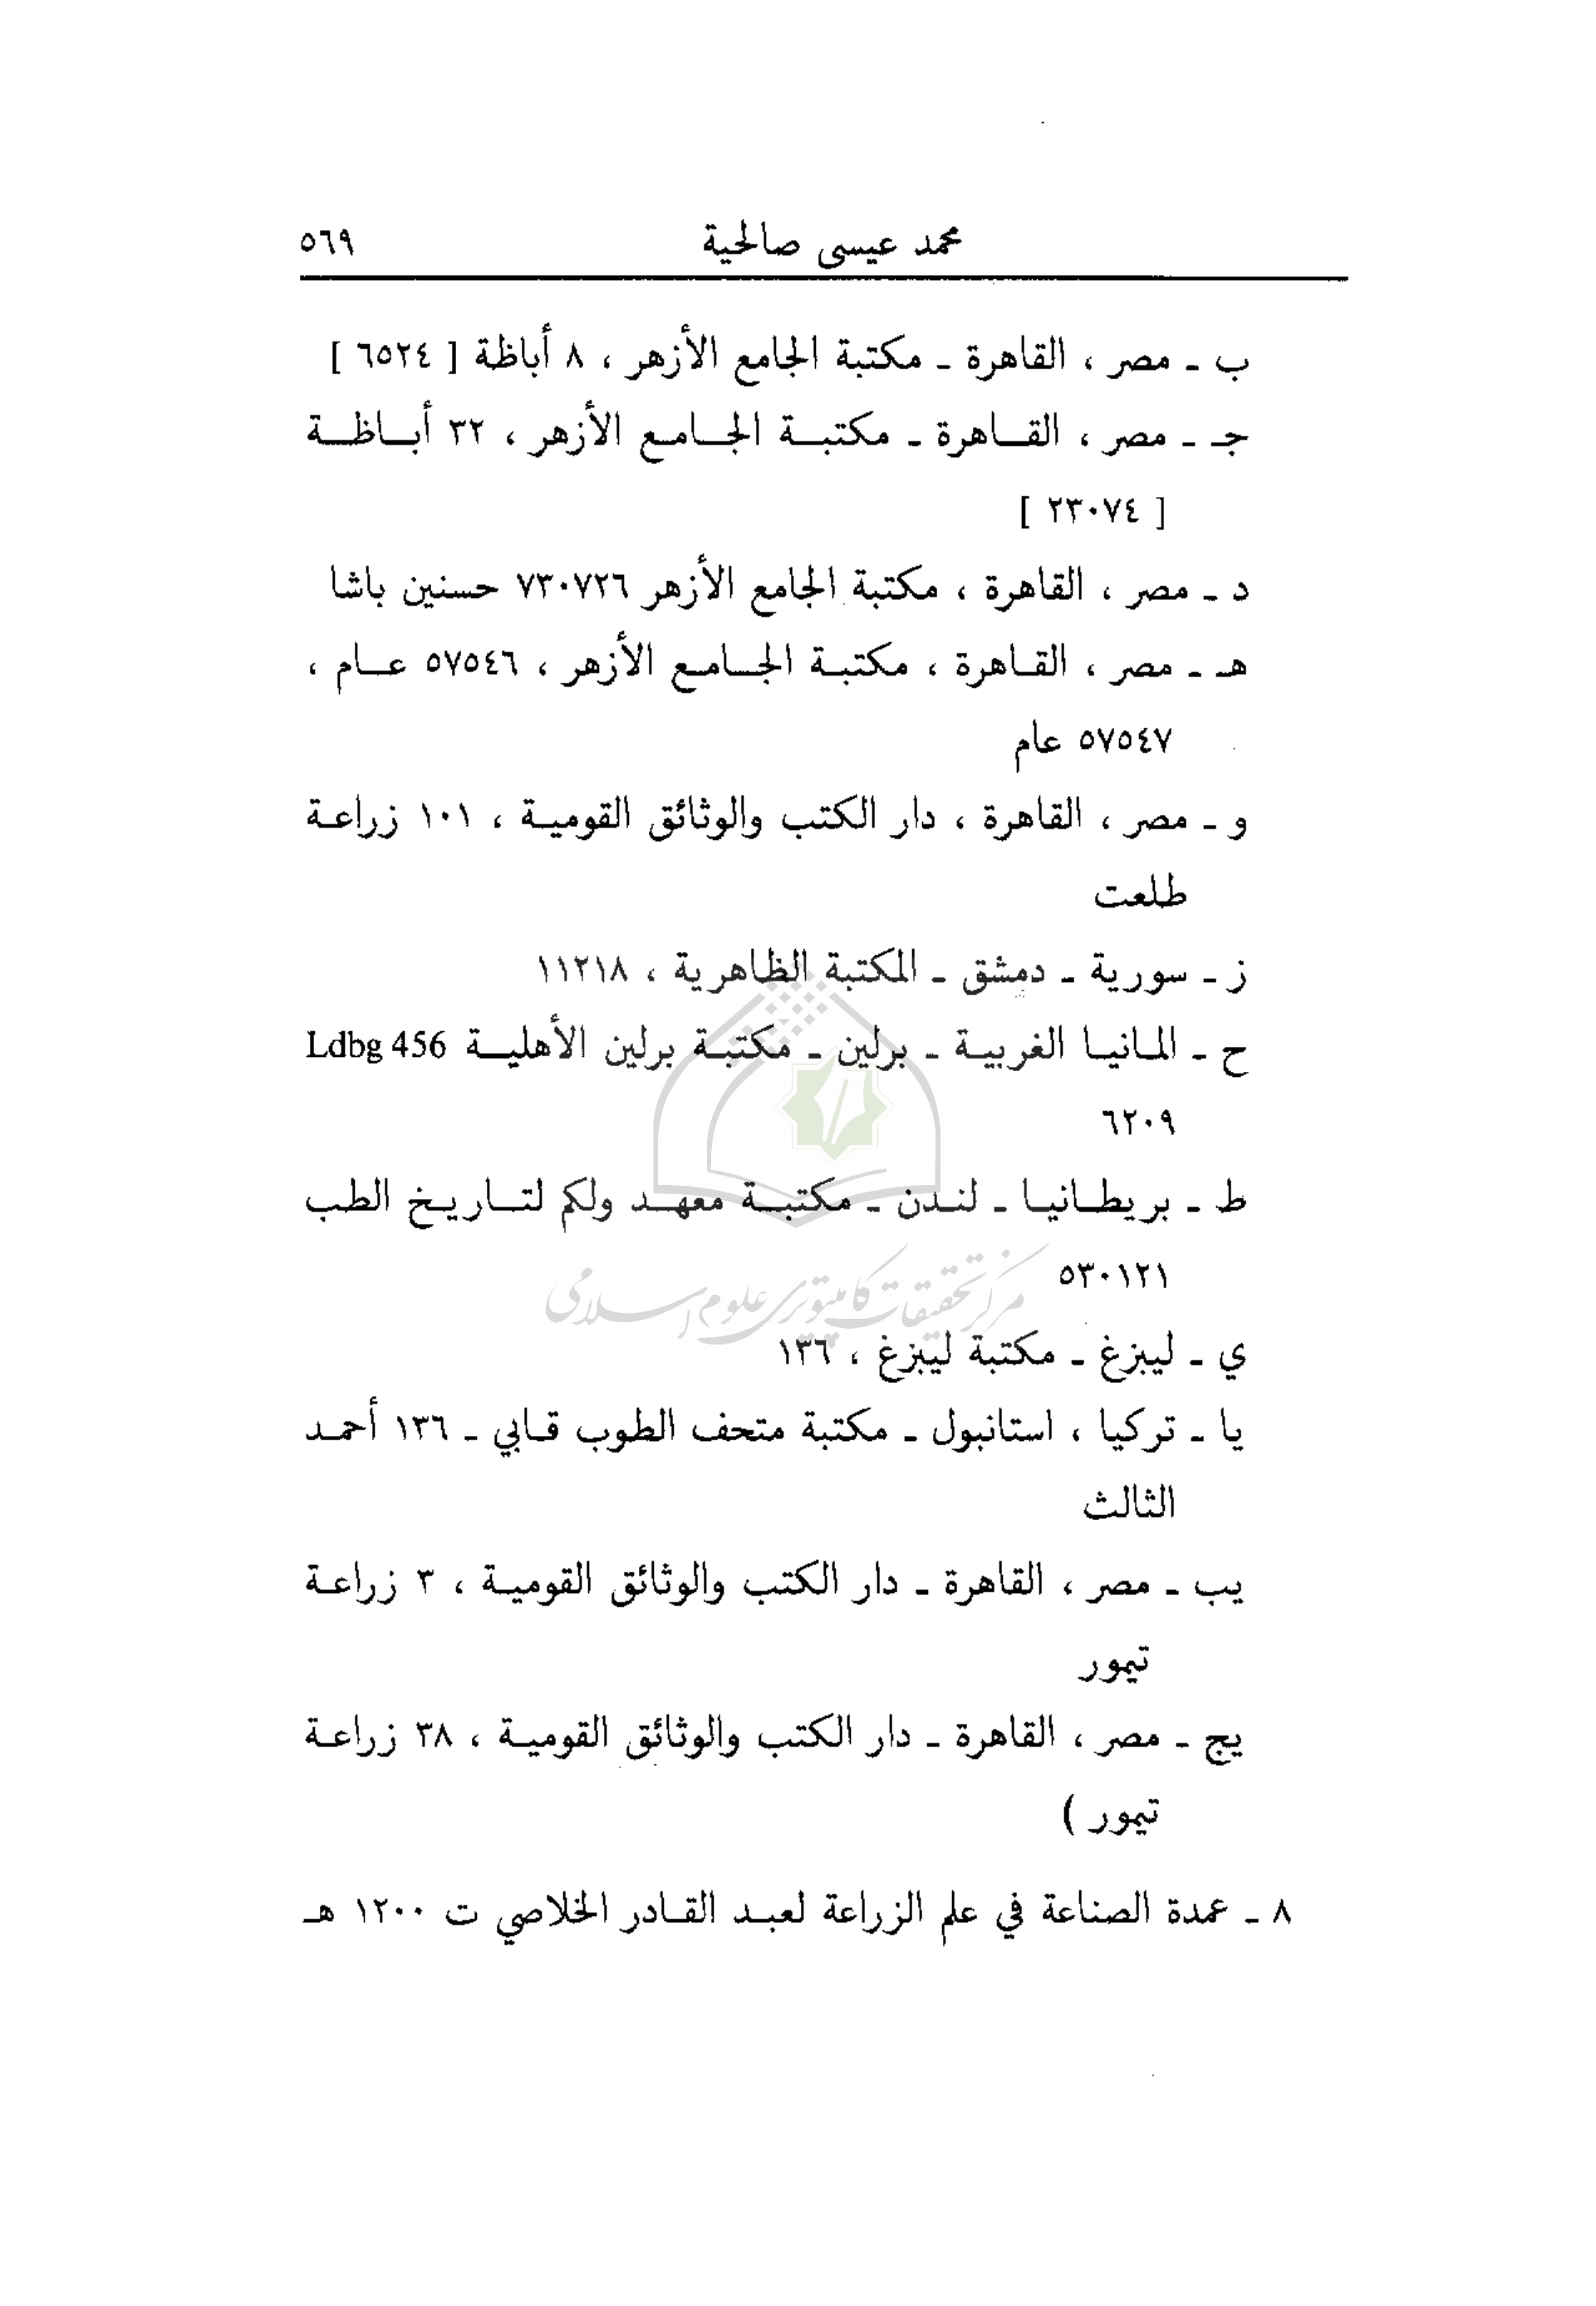 محمد عيسى صالحية ٥٦٩
ب ـ مصر ، القاهرة ـ مكتبة الجامع الأزهر ، ٨ أباظة [ ٦٥٢٤ ]
جـ ـ مصر ، القاهرة ـ مكتبة الجامع الأزهر ، ٣٢ أباظة
[ ٢٣٠٧٤ ]
د ـ مصر ، القاهرة ، مكتبة الجامع الأزهر ٧٣٠٧٢٦ حسنين باشا
هـ ـ مصر ، القاهرة ، مكتبة الجامع الأزهر ، ٥٧٥٤٦ عام ،
٥٧٥٤٧ عام
و ـ مصر ، القاهرة ، دار الكتب والوثائق القومية ، ١٠١ زراعة
طلعت
ز ـ سورية ـ دمشق ـ المكتبة الظاهرية ، ١١٢١٨
ح ـ المانيا الغربية ـ برلين ـ مكتبة برلين الأهلية Ldbg 456
٦٢٠٩
ط ـ بريطانيا ـ لندن ـ مكتبة معهد ولكم لتاريخ الطب
٥٣٠١٢١
مركز تحقيقات كامپيوتری علوم اسلامی
ي ـ ليبزغ ـ مكتبة ليبزغ ، ١٣٦
يا ـ تركيا ، استانبول ـ مكتبة متحف الطوب قابي ـ ١٣٦ أحمد
الثالث
يب ـ مصر ، القاهرة ـ دار الكتب والوثائق القومية ، ٣ زراعة
تيمور
يج ـ مصر ، القاهرة ـ دار الكتب والوثائق القومية ، ٣٨ زراعة
تيمور )
٨ ـ عمدة الصناعة في علم الزراعة لعبد القادر الخلاصي ت ١٢٠٠ هـ